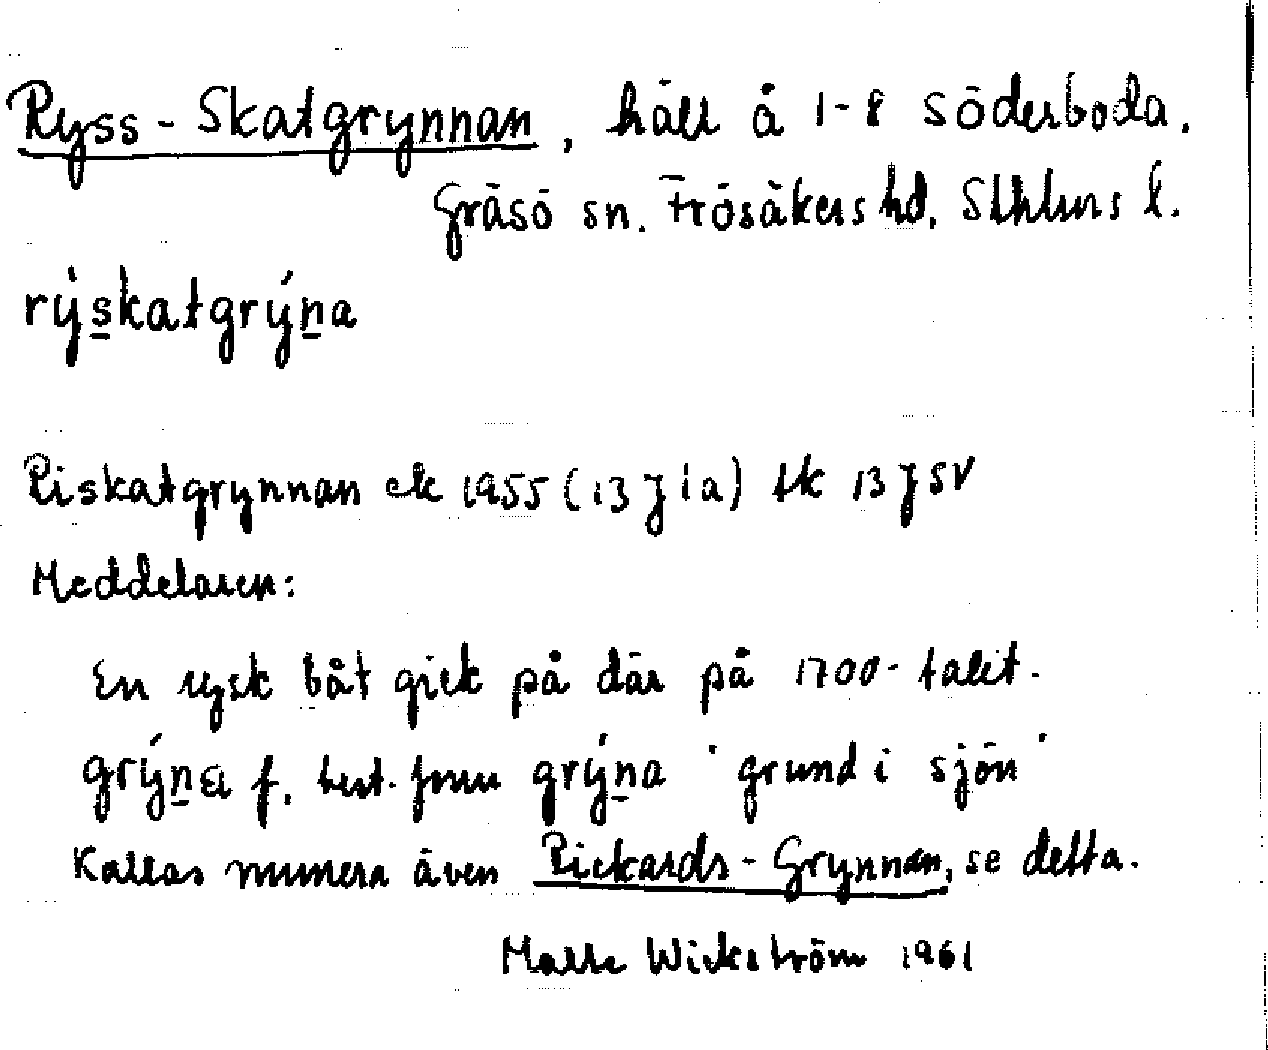 Ryss-Skatgrynnan, häll å 1-8 Söderboda,
Gräsö sn. Frösåkers hd, Sthlms l.
rýs̲katgrýn̲a
Riskatgrynnan ek 1955 (13 J 1a) tk 13 J SV
Meddelaren:
En rysk båt gick på där på 1700-talet.
grýn̲a f. best. form grýn̲a 'grund i sjön'
Kallas numera även Rickards-Grynnan, se detta.
Malte Wickström 1961